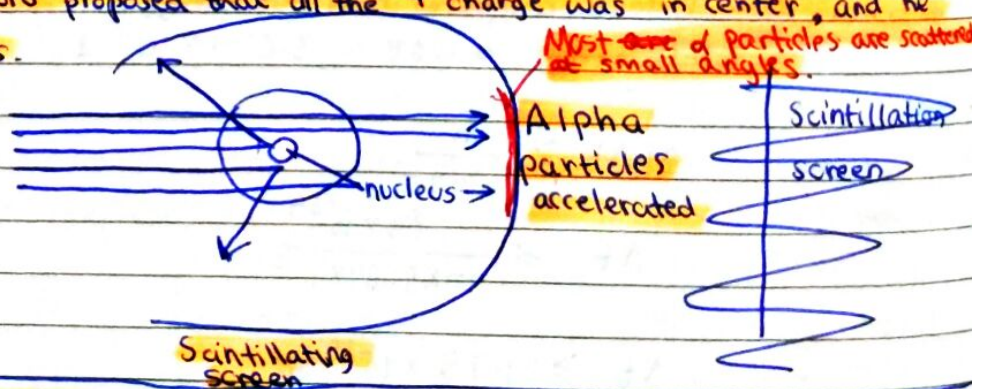 proposed that all the + charge was in center, and he
s.
Most are α particles are scattered
at small angles.
Alpha
particles
accelerated
nucleus
Scintillation
screen
Scintillating
screen